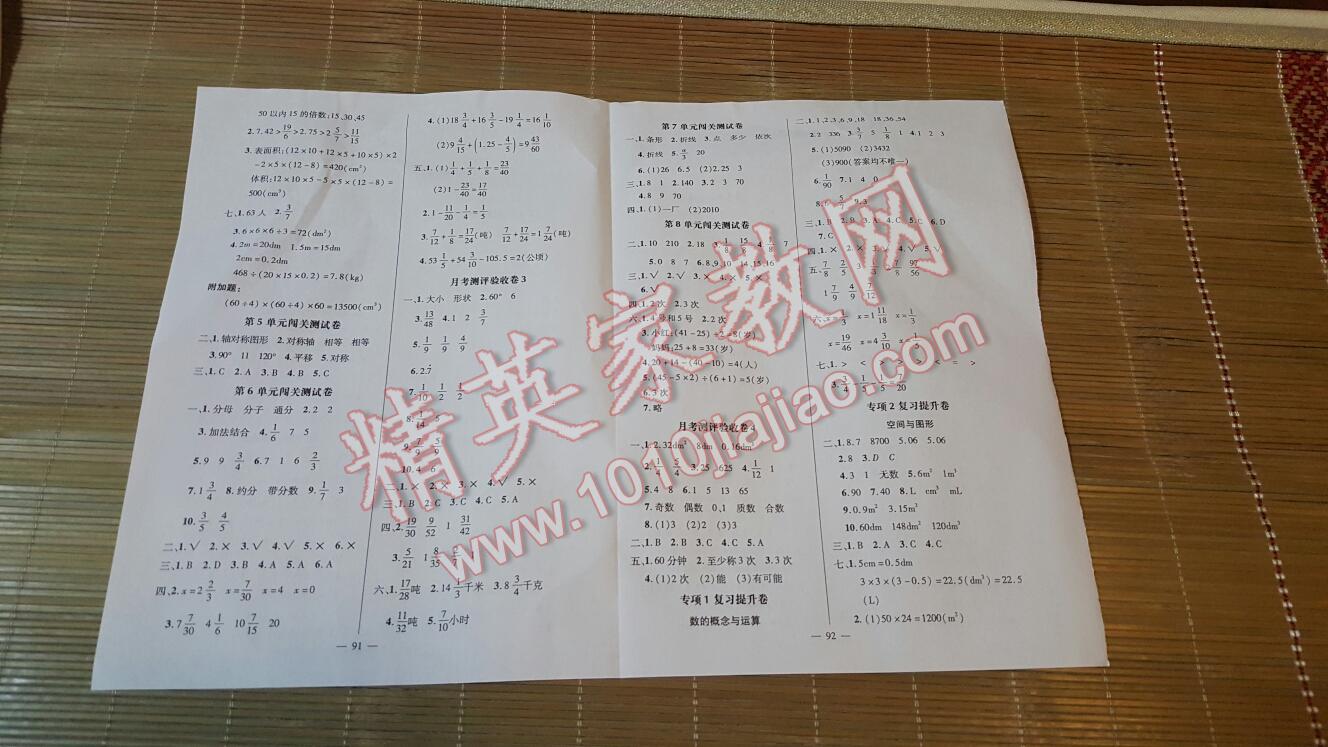 50以内15的倍数:15、30、45
2. 7.42>19/6>2.75>2 5/7>11/15
3. 表面积:(12×10+12×5+10×5)×2
-2×5×(12-8)=420(cm²)
体积:12×10×5-5×5×(12-8)=
500(cm³)
七、1. 63人 2. 3/7
3. 6×6×6÷3=72(dm²)
4. 2m=20dm 1.5m=15dm
2cm=0.2dm
468÷(20×15×0.2)=7.8(kg)
附加题:
(60÷4)×(60÷4)×60=13500(cm³)
第5单元闯关测试卷
二、1. 轴对称图形 2. 对称轴 相等 相等
3. 90° 11 120° 4. 平移 5. 对称
三、1. C 2. A 3. B 4. B 5. C
第6单元闯关测试卷
一、1. 分母 分子 通分 2. 2 2
3. 加法结合 4. 1/6 7 5
5. 9 9 3/4 6. 7 1 6 2/3
7. 1 3/4 8. 约分 带分数 9. 1/7 3
10. 3/5 4/5
二、1. √ 2. × 3. √ 4. √ 5. × 6. ×
三、1. B 2. D 3. B 4. B 5. A
四、2. x=2 2/3 x=7/30 x=4 x=0
3. 7 7/30 4 1/6 10 7/15 20
— 91 —
4. (1)18 3/4+16 3/5-19 1/4=16 1/10
(2)9 4/15+(1.25-4/5)=9 43/60
五、1. (1)1/4+1/5+1/8=23/40
(2)1-23/40=17/40
2. 1-11/20-1/4=1/5
3. 7/12+1/8=17/24(吨) 7/12+17/24=1 7/24(吨)
4. 53 1/5+54 3/10-105.5=2(公顷)
月考测评验收卷3
一、1. 大小 形状 2. 60° 6
3. 13/48 4. 1 2 3/7
5. 1/9 1/9 4/9
6. 2.7
7. 1/10 1/2 1/2
8. 1/14 5/14
9. 7/9 5/9
10. 4 6
二、1. × 2. × 3. × 4. √ 5. ×
三、1. B 2. C 3. C 4. C 5. A
四、2. 19/30 9/52 1 31/42
3. 5/21 1 8/35
六、1. 17/28吨 2. 14 1/3千米 3. 8 3/4千克
4. 11/32吨 5. 7/10小时
第7单元闯关测试卷
一、1. 条形 2. 折线 3. 点 多少 依次
4. 折线 5. a/3 20
6. (1)26 6.5 (2)2.25 3
三、1. 8 1 2. 140 3. 2 3 70
4. 8 9 70
四、1. (1)一厂 (2)2010
第8单元闯关测试卷
二、1. 10 210 2. 18 3. 1/8 15/8 4. 7/8 7
5. 0 8 7 6. 8,9,10 14,15,16
三、1. √ 2. √ 3. × 4. × 5. ×
6. √
四、1. 2次 2. 3次
六、1. 4号和5号 2. 2次
3. 小红:(41-25)÷2=8(岁)
妈妈:25+8=33(岁)
4. 20+14-(40-10)=4(人)
5. (45-5×2)÷(6+1)=5(岁)
6. 3次
7. 略
月考测评验收卷4
一、1. 2.32dm² 8dm 0.16dm³
2. 1/4 5/4 3. 25 625 4. 1/12 1
5. 4 8 6. 5 1 13 65
7. 奇数 偶数 0、1 质数 合数
8. (1)3 (2)2 (3)3
二、1. B 2. C 3. A 4. C 5. A
五、1. 60分钟 2. 至少称3次 3. 3次
4. (1)2次 (2)能 (3)有可能
专项1复习提升卷
数的概念与运算
二、1. 1,2,3,6,9,18 18,36,54
2. 2 336 3. 3/7 5 1/8 4. 1 1 2 3
5. (1)5090 (2)3432
(3)900(答案均不唯一)
6. 1/90 7. 1 4 0
8. 6 5/7 9. 3
三、1. B 2. B 3. A 4. C 5. C 6. D
7. C
四、1. × 2. × 3. √ 4. √ 5. √
五、7/8 2/5 7/8 97/56
1 7/9 4/9 7/12
六、x=1/3 x=1 11/18 x=1/3
x=19/46 x=4 3/10 x=5/6
七、1. > < < < = >
3. 3/4-1/5-2/5=3/20
专项2复习提升卷
空间与图形
二、1. 8.7 8700 5.06 5.06
2. 8 3. D C
4. 3 1 无数 5. 6m² 1m³
6. 90 7. 40 8. L cm³ mL
9. 0.9m² 3.15m³
10. 60dm 148dm² 120dm³
三、1. B 2. A 3. C 4. C
七、1. 5cm=0.5dm
3×3×(3-0.5)=22.5(dm³)=22.5
(L)
2. (1)50×24=1200(m²)
— 92 —
精英家教网
www.1010jiajiao.com